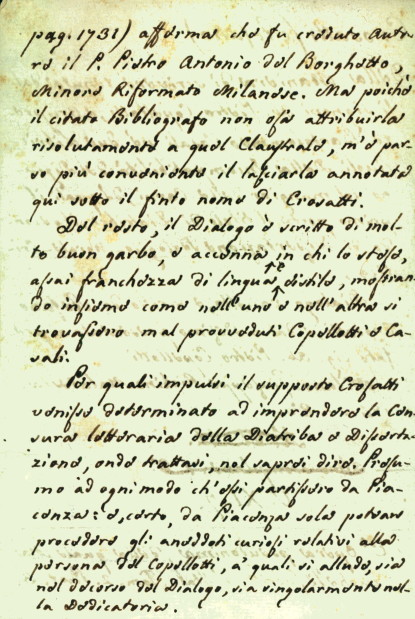 pag. 1731) afferma che fu creduto Auto-
re il P. Pietro Antonio dal Borghetto,
Minore Riformato Milanese. Ma poichè
il citato Bibliografo non osa attribuirla
risolutamente a quel Claustrale, m'è par-
so più conveniente il lasciarla annotata
qui sotto il finto nome di Crosatti.
Del resto, il Dialogo è scritto di mol-
to buon garbo, e accenna in chi lo stese,
assai franchezza di lingua, e di stile, mostran-
do insieme come nell'uno e nell'altra si
trovassero mal provveduti Copellotti e Ca-
sali.
Per quali impulsi il supposto Crosatti
venisse determinato ad imprendere la Cen-
sura letteraria della Diatriba e Disserta-
zione, onde trattasi, nol saprei dire. Presu-
mo ad ogni modo ch'essi partissero da Pia-
cenza: e, certo, da Piacenza sola potean
procedere gli aneddoti curiosi relativi alla
persona del Copellotti, a' quali si allude, sia
nel decorso del Dialogo, sia singolarmente nel-
la Dedicatoria.